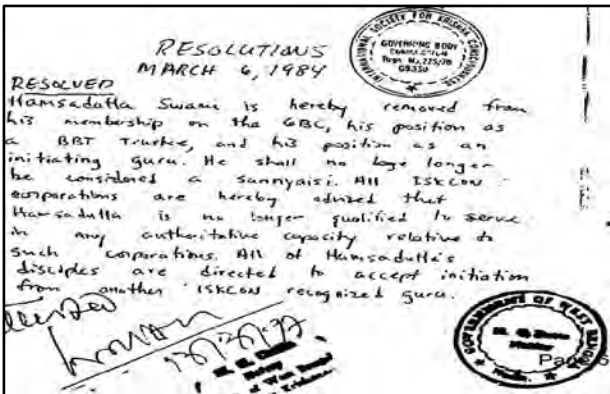 RESOLUTIONS
MARCH 6, 1984
INTERNATIONAL SOCIETY FOR KRISHNA CONSCIOUSNESS
GOVERNING BODY
RESOLVED
Hamsadutta Swami is hereby removed from
his membership on the GBC, his position as
a BBT Trustee, and his position as an
initiating guru. He shall no longer
be considered a sannyaisi. All ISKCON
corporations are hereby advised that
Hamsadutta is no longer qualified to serve
in any authoritative capacity relative to
such corporations. All of Hamsadutta's
disciples are directed to accept initiation
from another ISKCON recognized guru.
GOVERNMENT OF WEST BENGAL
Notary